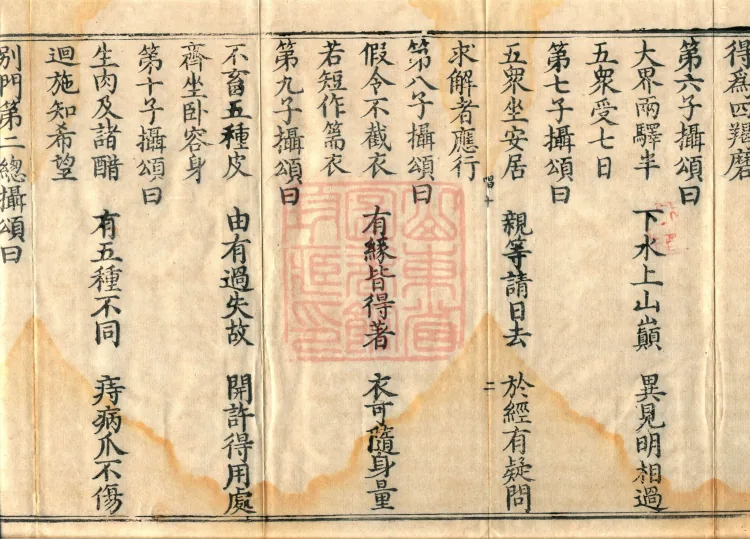 得爲四羯磨
第六子攝頌曰
大界兩驛半 下水上山巓 異見明相過
五衆受七日
第七子攝頌曰
五衆坐安居 親等請日去 於經有疑問
求解者應行
唱十
二
第八子攝頌曰
假令不截衣 有緣皆得著 衣可隨身量
若短作篅衣
第九子攝頌曰
不畜五種皮 由有過失故 開許得用處
齊坐卧容身
第十子攝頌曰
生肉及諸醋 有五種不同 痔病爪不傷
迴施知希望
別門第二總攝頌曰